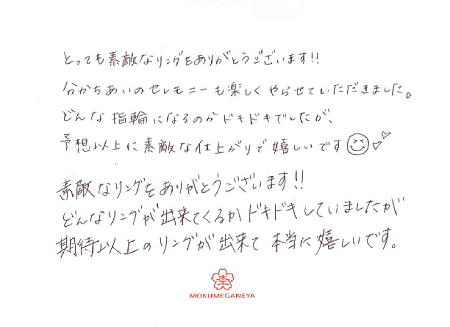 とっても素敵なリングをありがとうございます!!
分かちあいのセレモニーも楽しくやらせていただきました。
どんな指輪になるのかドキドキでしたが、
予想以上に素敵な仕上がりで嬉しいです
素敵なリングをありがとうございます!!
どんなリングが出来てくるかドキドキしていましたが
期待以上のリングが出来て本当に嬉しいです。
MOKUMEGANEYA